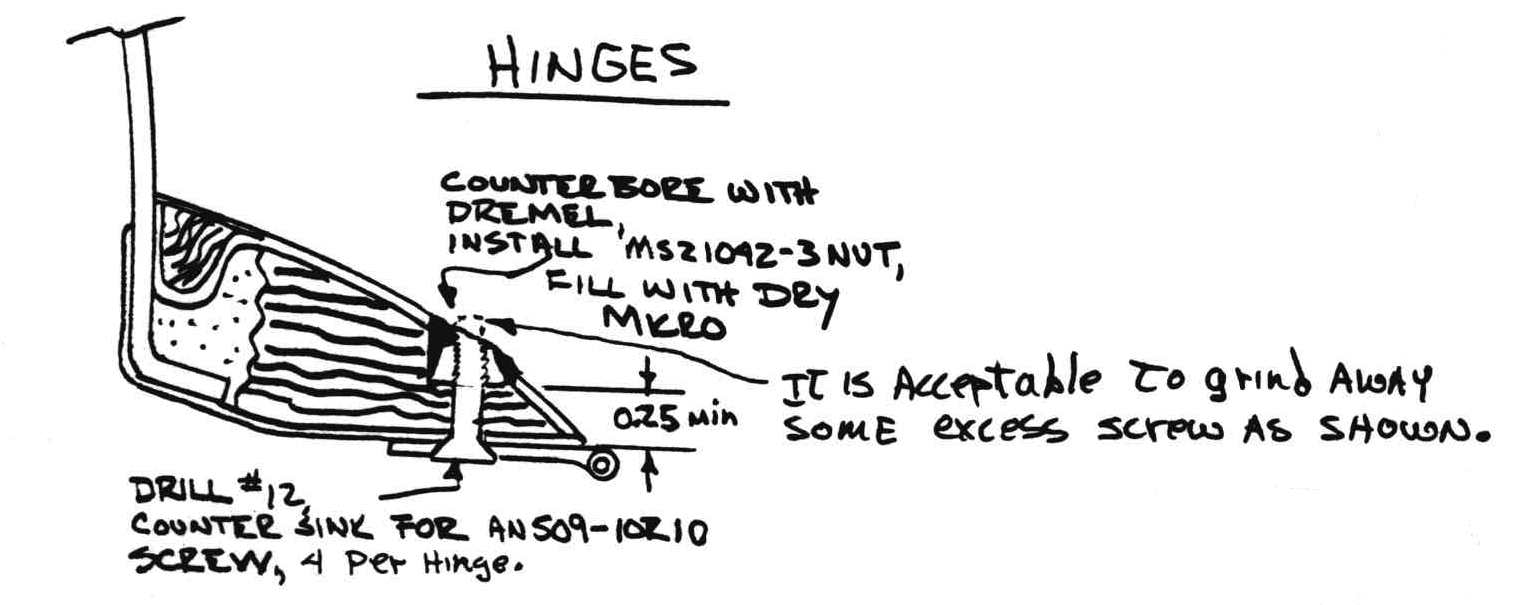 HINGES
COUNTERBORE WITH
DREMEL,
INSTALL MS21042-3 NUT,
FILL WITH DRY
MICRO
0.25 min
IT IS Acceptable To grind AWAY
SOME excess screw AS SHOWN.
DRILL #12,
COUNTER SINK FOR AN509-10R10
SCREW, 4 Per Hinge.